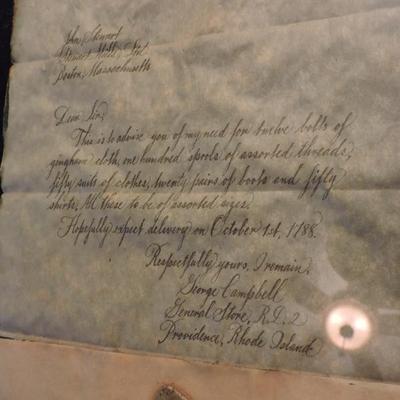 John Stewart
Stewart Mills, Ltd.
Boston, Massachusetts
Dear Sir;
This is to advise you of my need for twelve bolts of
gingham cloth, one hundred spools of assorted threads,
fifty suits of clothes, twenty pairs of boots and fifty
shirts. All these to be of assorted sizes.
Hopefully expect delivery on October 1st, 1788.
Respectfully yours, I remain,
George Campbell
General Store, R.D. 2
Providence, Rhode Island